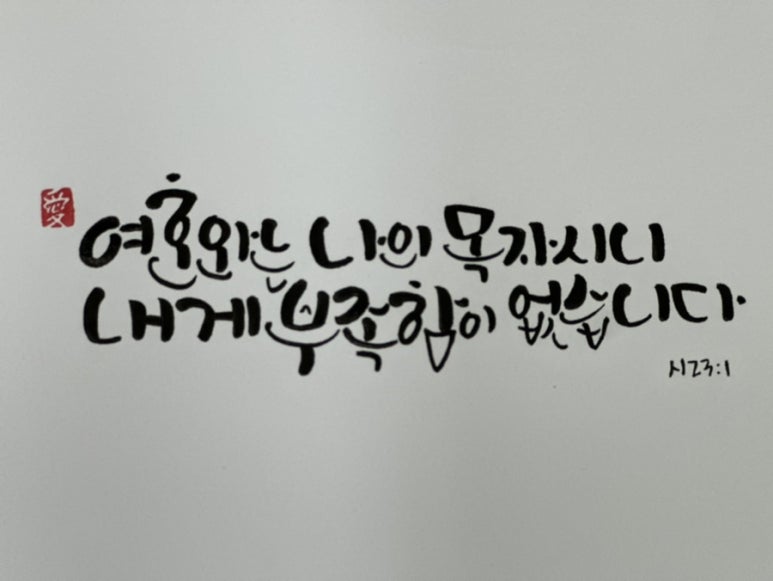 愛
여호와는 나의 목자시니
내게 부족함이 없습니다.
시23:1